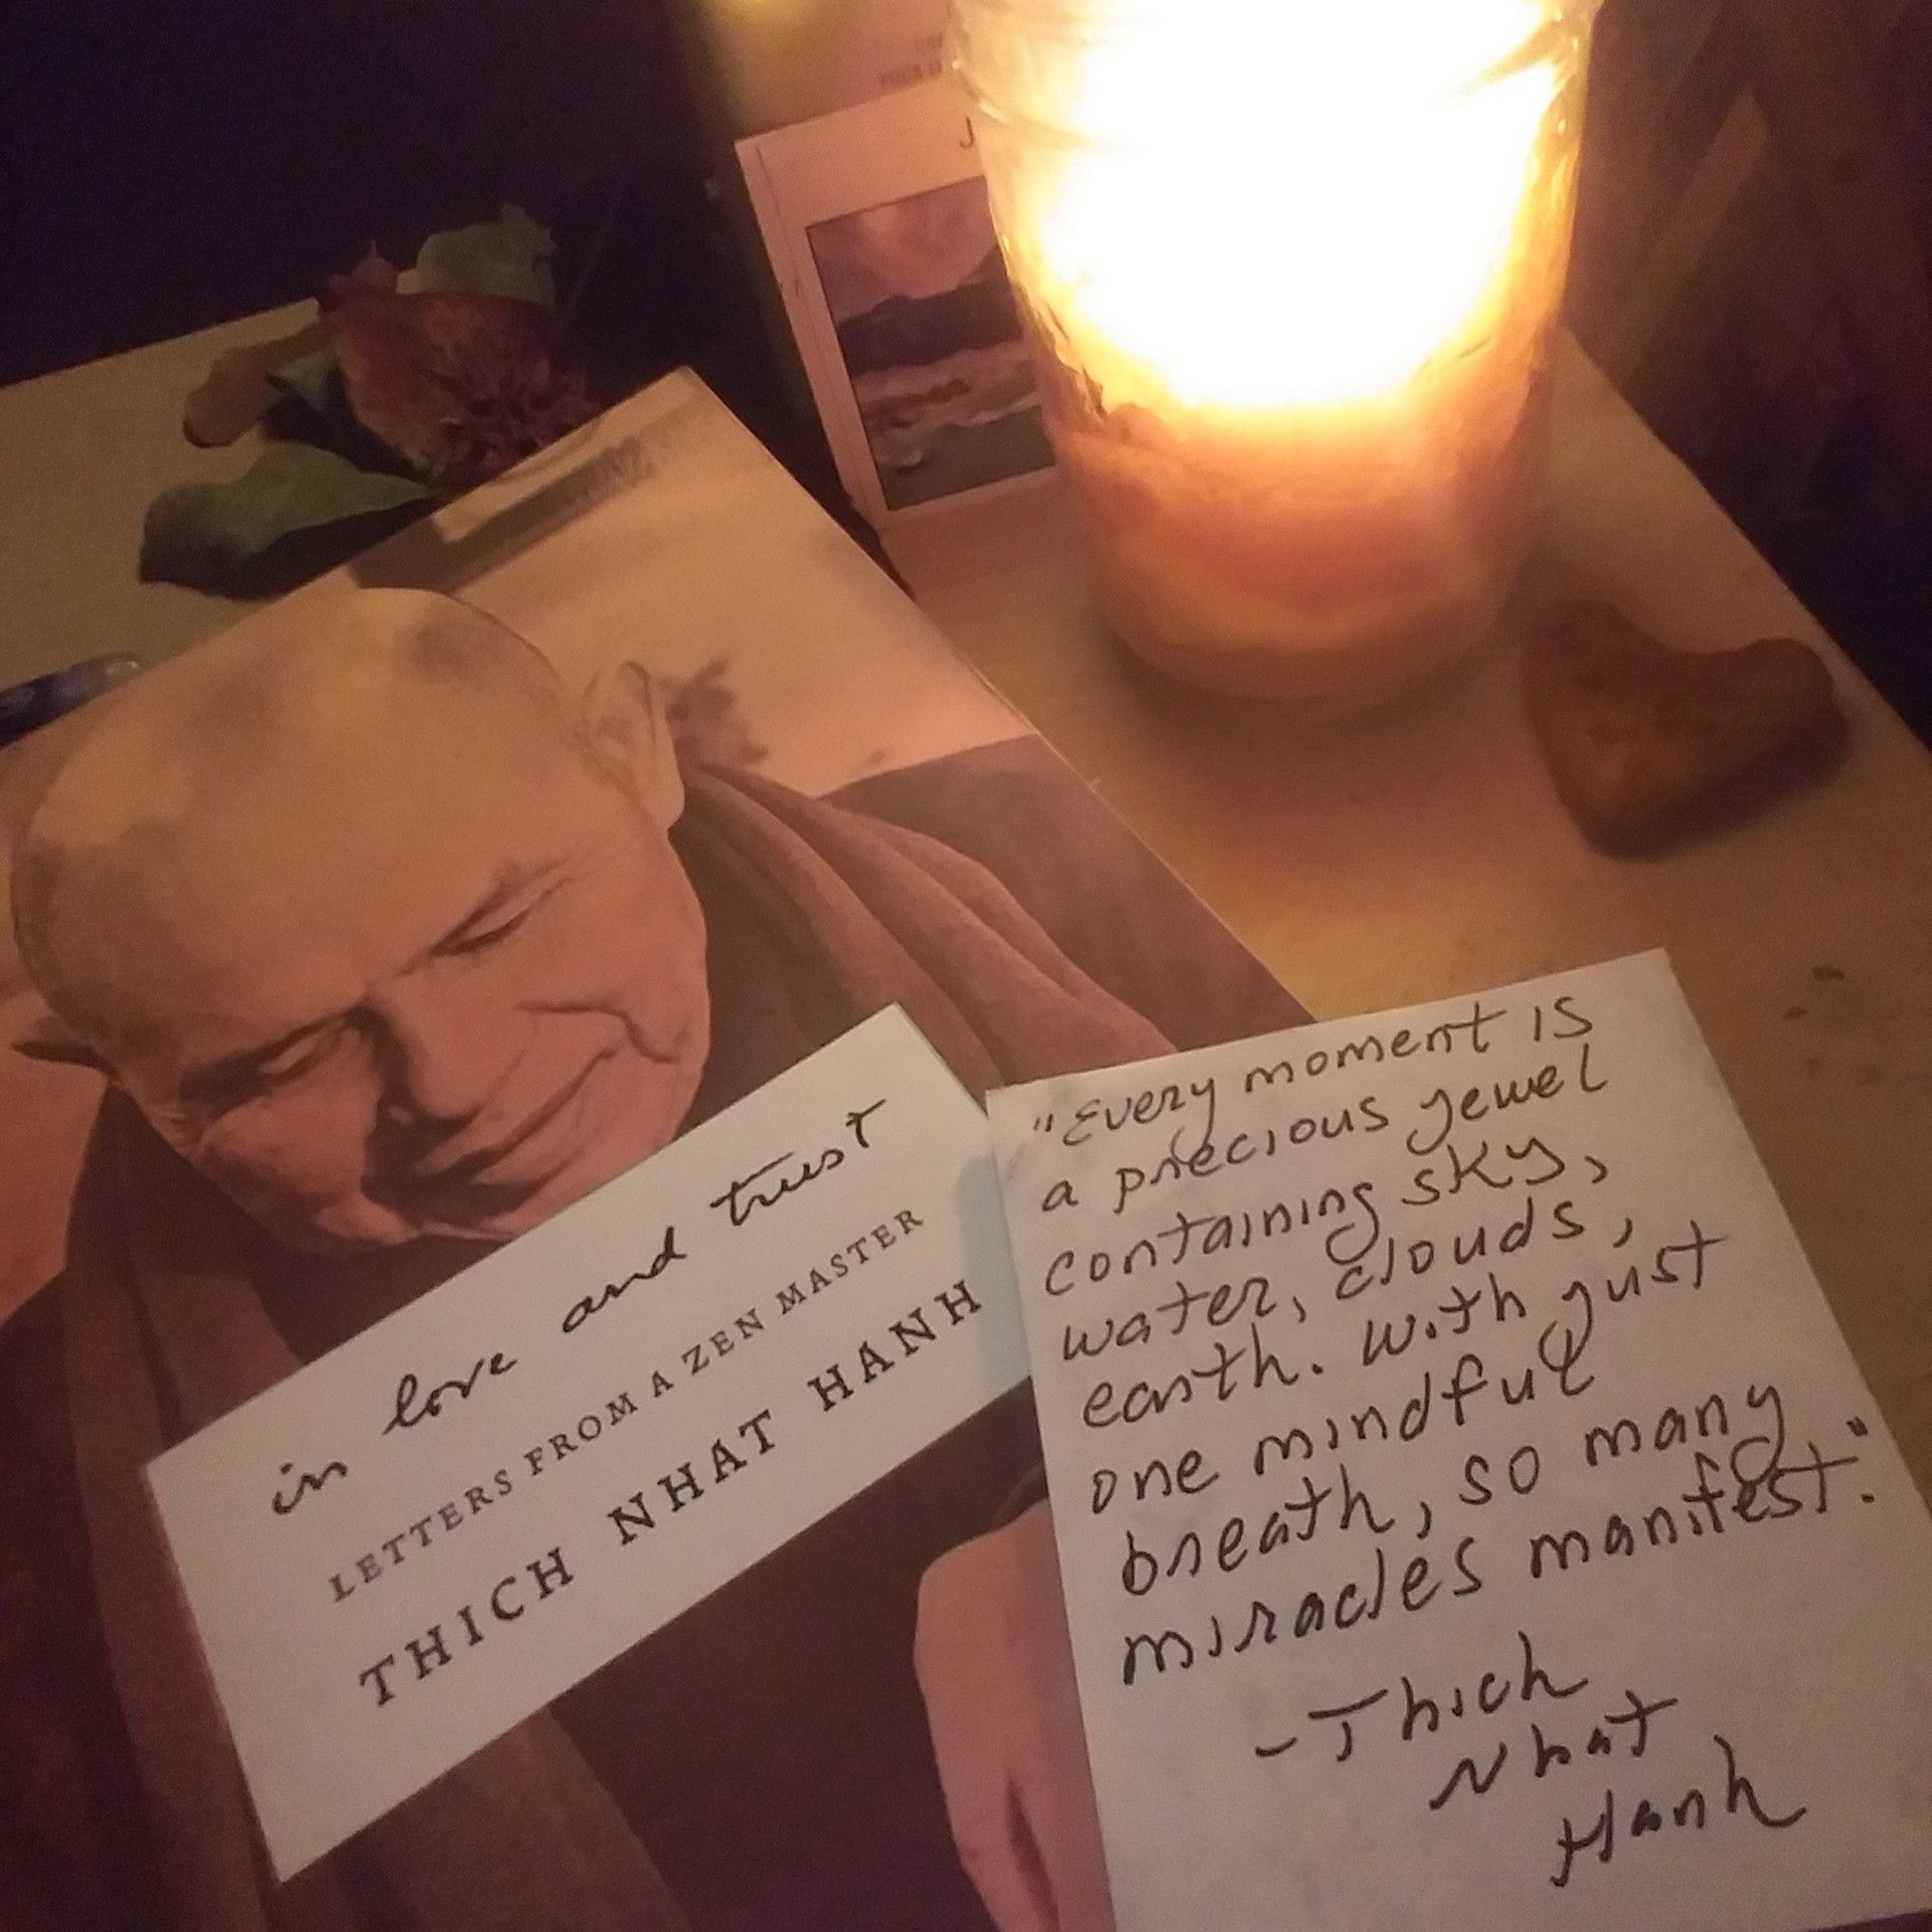 J
in love and trust
LETTERS FROM A ZEN MASTER
THICH NHAT HANH
"Every moment is
a precious jewel
containing sky,
water, clouds,
earth. With just
one mindful
breath, so many
miracles manifest."
-Thich
Nhat
Hanh